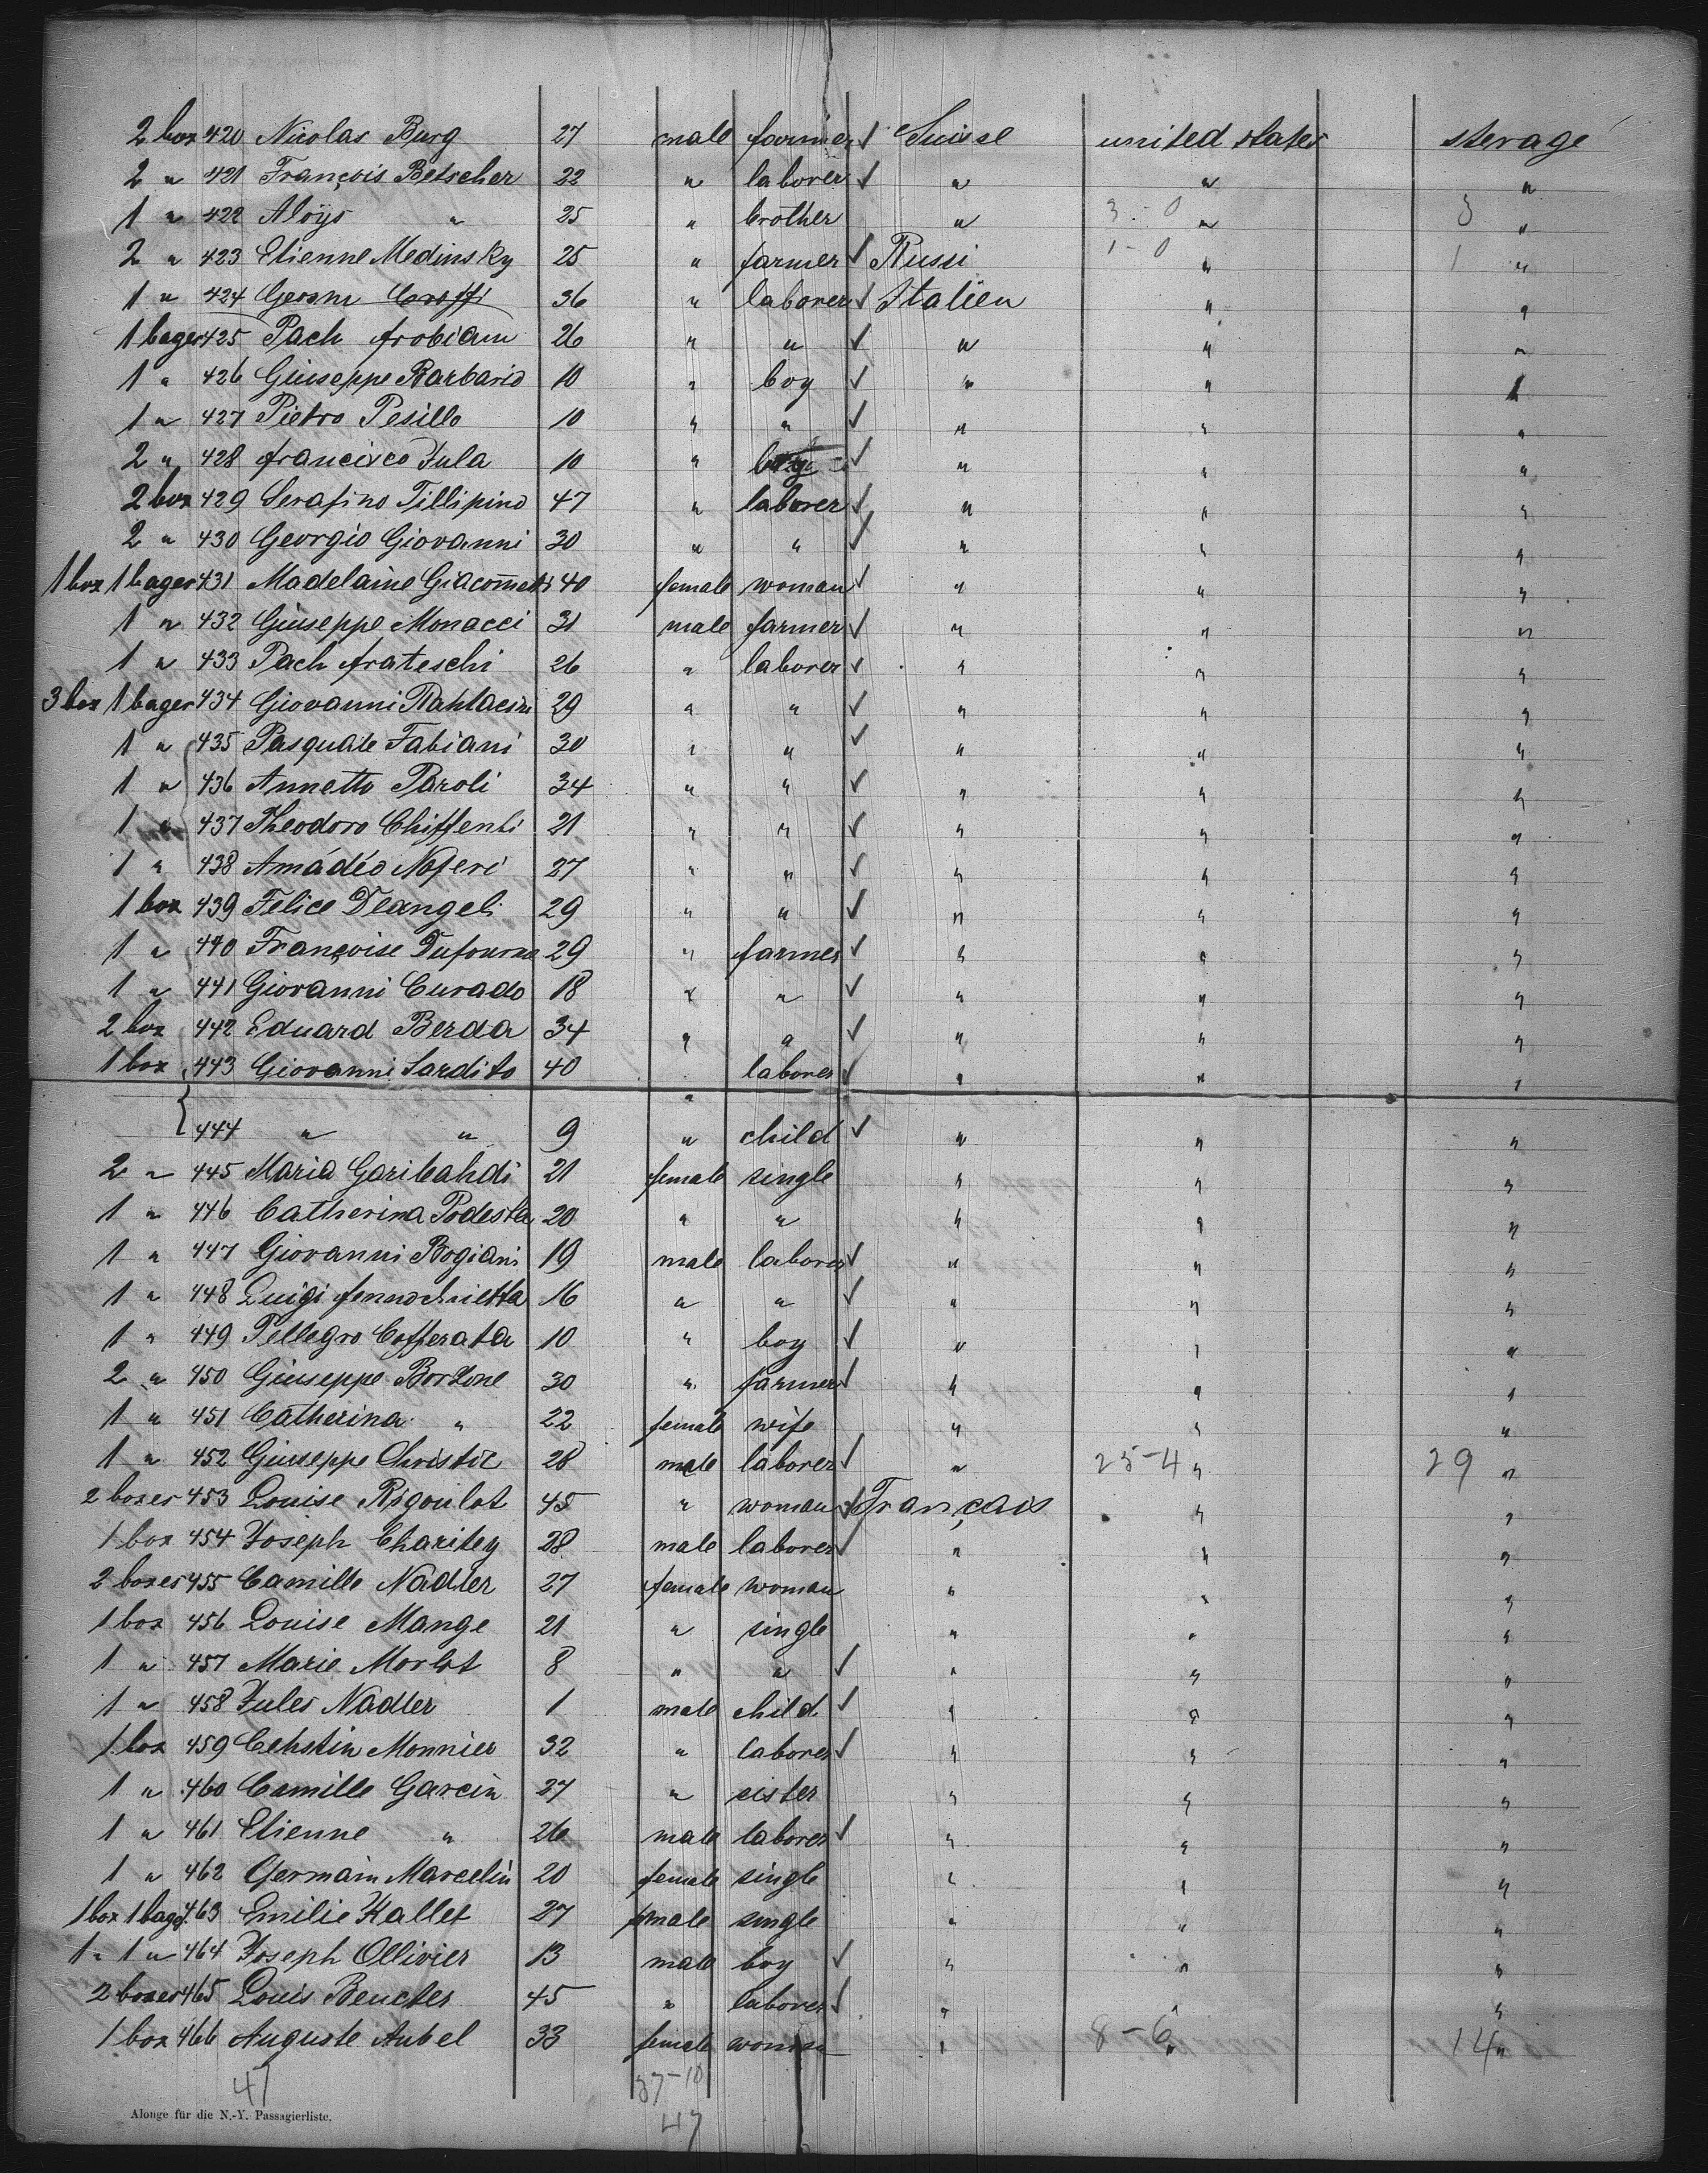 2 box 420 Nicolas Burg 27 male farmer ✓ Suisse united states sterage
2 " 421 François Betscher 22 " laborer ✓ " " "
1 " 422 Aloÿs " 25 " brother " 3-0 " 3 "
2 " 423 Etienne Medinsky 25 " farmer ✓ Russi 1-0 " 1 "
1 " 424 36 " laborer ✓ Italien " "
1 bager 425 Pach frobiam 26 " " ✓ " " "
1 " 426 Giuseppe Barbario 10 " boy ✓ " " "
1 " 427 Pietro Pesillo 10 " " ✓ " " "
2 " 428 francisco Jula 10 " ✓ " " "
2 box 429 Serafino Tillipino 47 " laborer ✓ " " "
2 " 430 Georgio Giovanni 30 " " ✓ " " "
1 box 1 bager 431 Madelaine Giacometti 40 female woman ✓ " " "
1 " 432 Giuseppe Monacci 31 male farmer ✓ " " "
1 " 433 Pach frateschi 26 " laborer ✓ " " "
3 box 1 bager 434 Giovanni 29 " " ✓ " " "
1 " 435 Pasquale Fabiani 30 " " ✓ " " "
1 " 436 Annetto Paroli 34 " " ✓ " " "
1 " 437 Theodoro Chiffenti 21 " " ✓ " " "
1 " 438 Amádéo Noferi 27 " " ✓ " " "
1 box 439 Felice Deangeli 29 " " ✓ " " "
1 " 440 Françoise 29 " farmer ✓ " " "
1 " 441 Giovanni Curado 18 " " ✓ " " "
2 box 442 Eduard Berda 34 " " ✓ " " "
1 box 443 Giovanni Sardito 40 " laborer ✓ " " "
444 " " 9 " child ✓ " " "
2 " 445 Maria Garibahdi 21 female single " " "
1 " 446 Catherina Podesta 20 " " " " "
1 " 447 Giovanni Bogiani 19 male laborer ✓ " " "
1 " 448 Luigi 16 " " ✓ " " "
1 " 449 Pellegro Cofferata 10 " boy ✓ " " "
2 " 450 Giuseppe Bortone 30 " farmer ✓ " " "
1 " 451 Catherina " 22 female wife " " "
1 " 452 Giuseppe 28 male laborer ✓ " 25-4 " 29 "
2 boxes 453 Louise Rigoulot 45 " woman ✓ Français " "
1 box 454 Joseph Charitey 28 male laborer ✓ " " "
2 boxes 455 Camille Nadler 27 female woman " " "
1 box 456 Louise Mange 21 " single " " "
1 " 457 Marie Morlot 8 " " ✓ " " "
1 " 458 Jules Nadler 1 male child ✓ " " "
1 box 459 Cehstin Monnier 32 " laborer ✓ " " "
1 " 460 Camille Garcin 27 " sister " " "
1 " 461 Etienne " 26 male laborer ✓ " " "
1 " 462 Germain Marcelin 20 female single " " "
1 box 1 bag. 463 Emilie Hallet 27 female single " " "
1 " 1 " 464 Joseph Ollivier 13 male boy ✓ " " "
2 boxes 465 Louis Beucler 45 " laborer ✓ " " "
1 box 466 Auguste Aubel 33 female woman " 8-6 " 14 "
47 37-10
47
Alonge für die N.-Y. Passagierliste.